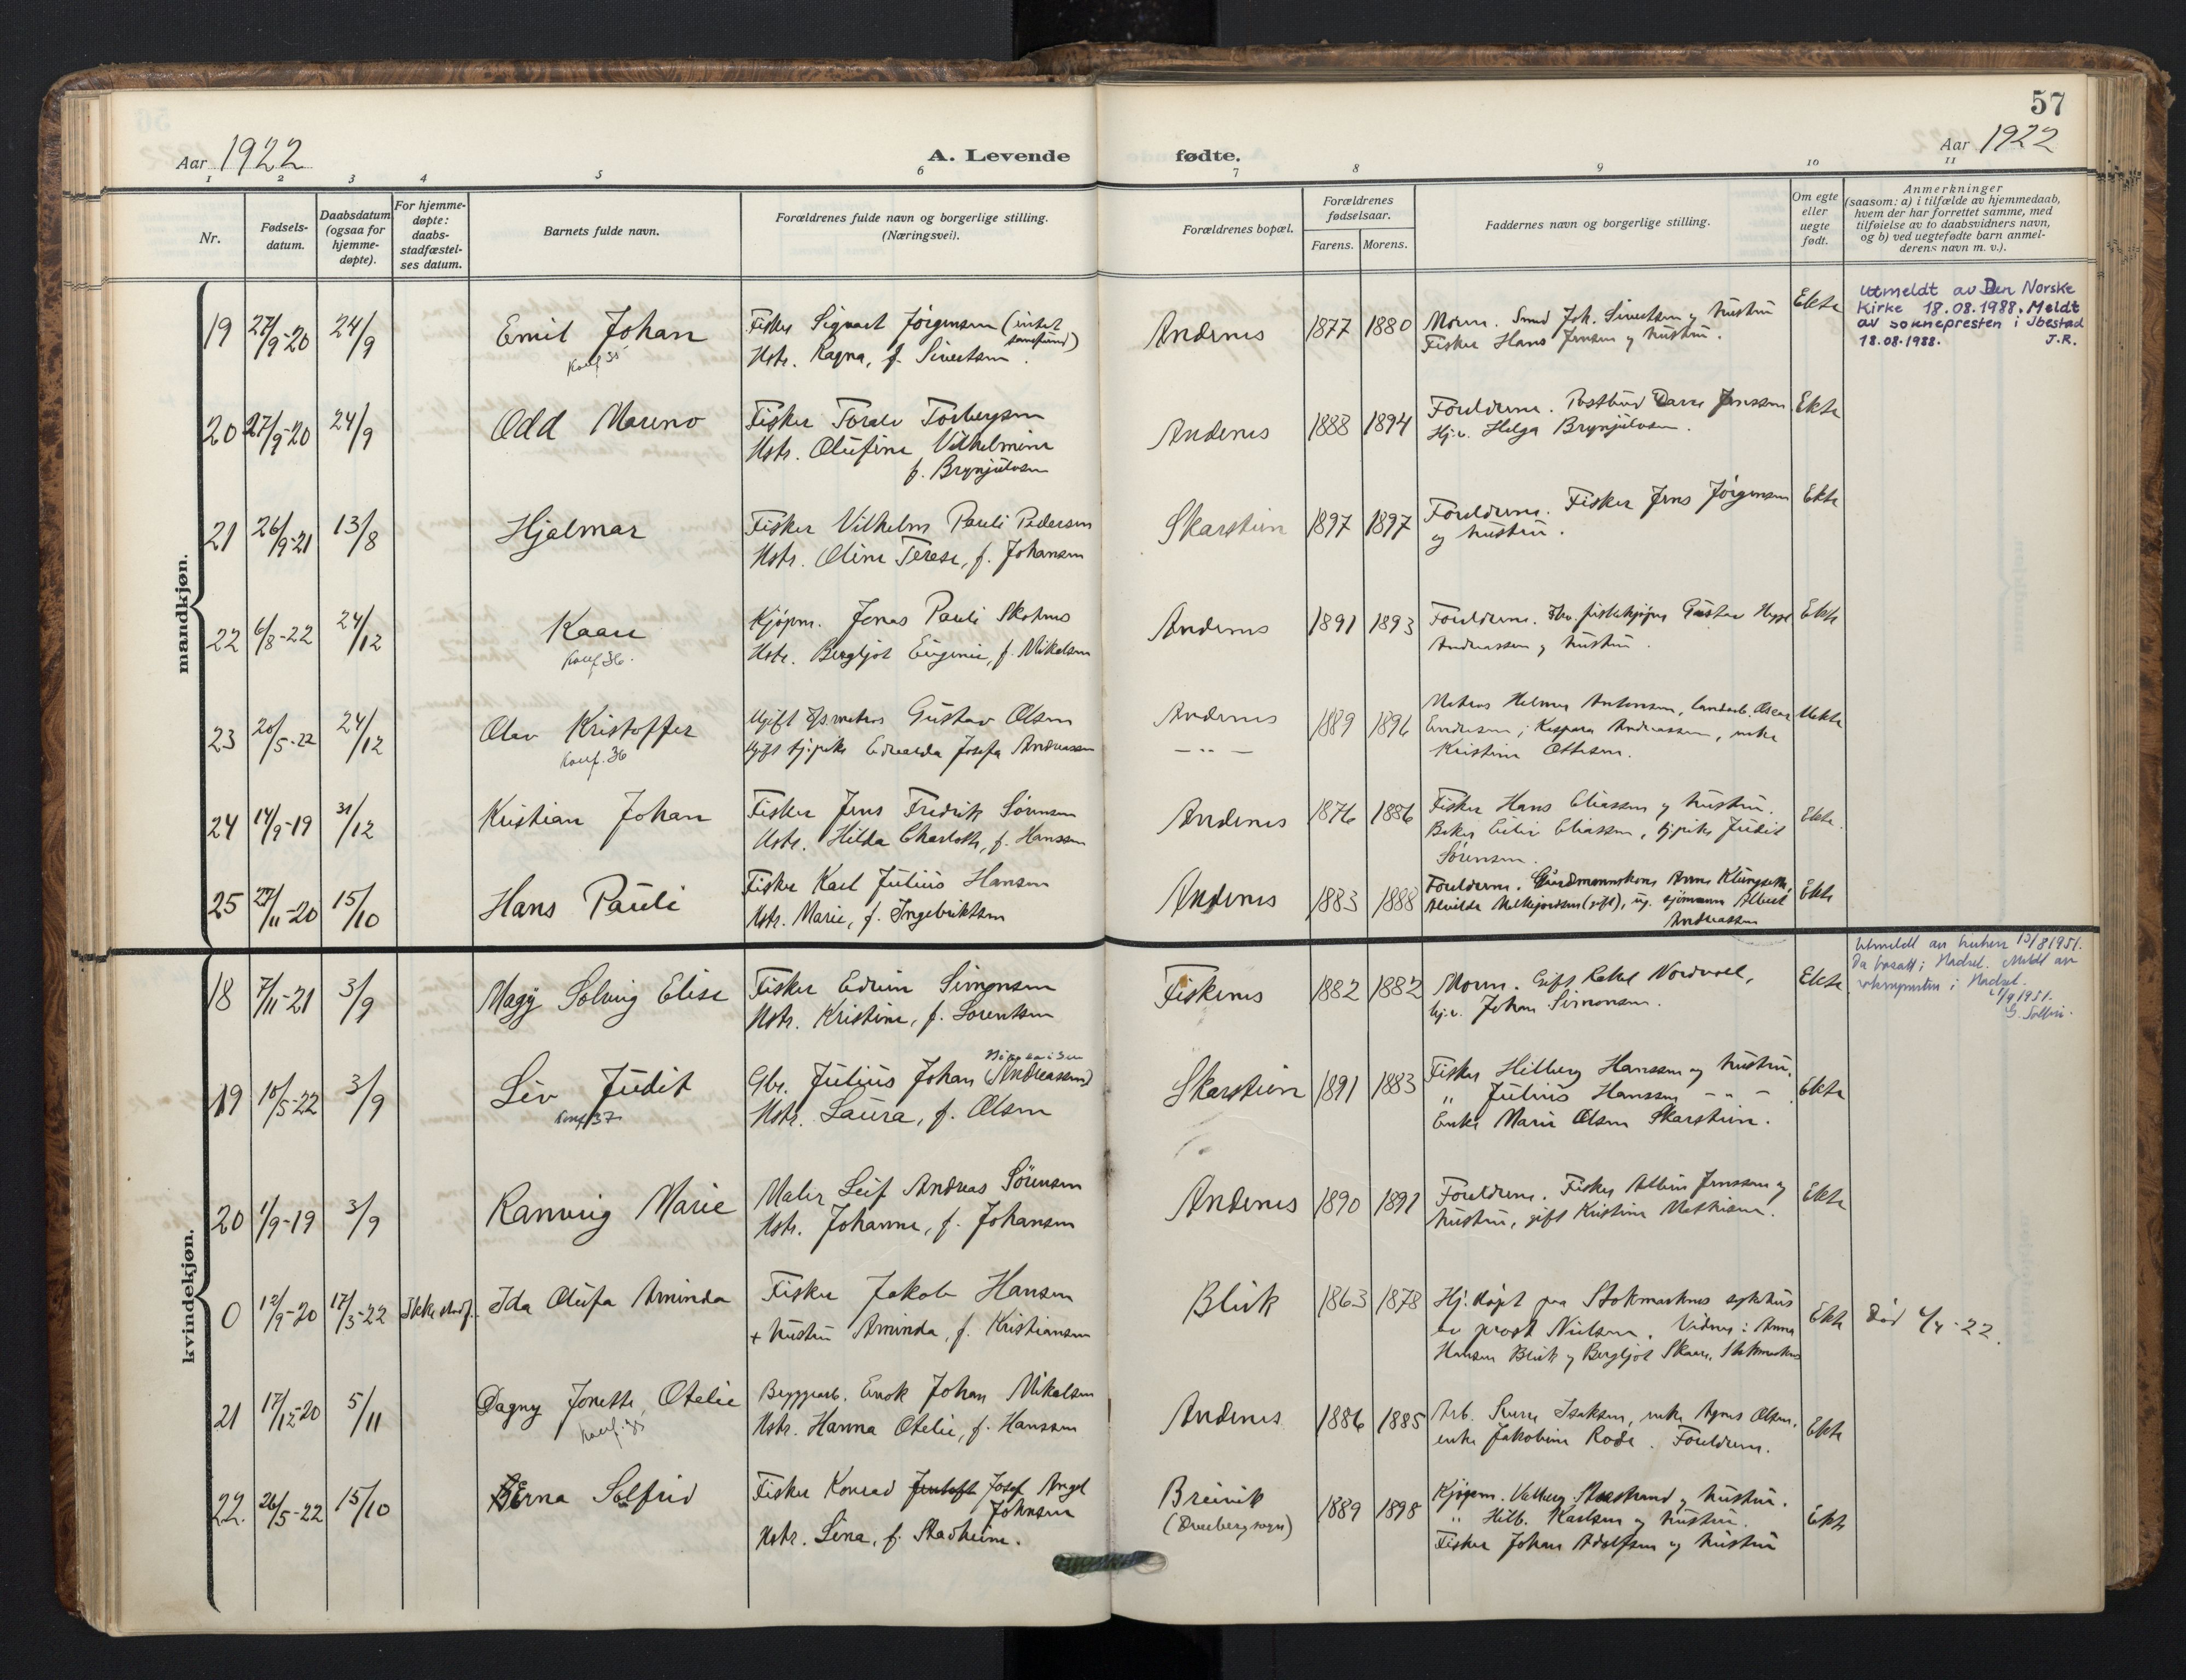 57
Aar 1922
A. Levende
fødte.
Aar 1922
1 2 3 4 5 6 7 8 9 10 11
Nr.
Fødsels-
datum.
Daabsdatum
(ogsaa for
hjemme-
døpte).
For hjemme-
døpte:
daabs-
stadfæstel-
ses datum.
Barnets fulde navn.
Forældrenes fulde navn og borgerlige stilling.
(Næringsvei).
Forældrenes bopæl.
Forældrenes
fødselsaar.
Farens. Morens.
Faddernes navn og borgerlige stilling.
Om egte
eller
uegte
født.
Anmerkninger
(saasom: a) i tilfælde av hjemmedaab,
hvem der har forrettet samme, med
tilføielse av to daabsvidners navn,
og b) ved uegtefødte barn anmel-
derens navn m. v.).
mandkjøn.
19 27/9-20 24/9 Emil Johan
Konf 35
Fisker Sigvart Jørgensen (intet
samfund)
Hstr. Ragna, f. Sivertsen.
Andenes 1877 1880
Moren. Smed Joh. Sivertsen og hustru
Fisker Hans Jensen og hustru.
Ekte
Utmeldt av Den Norske
Kirke 18.08.1988. Meldt
av soknepresten i Ibestad
18.08.1988. J.R.
20 27/9-20 24/9 Odd Mareno
Fisker Toralv Torbergsen
Hstr. Olufine Vilhelmine
f. Brynjulvsen
Andenes 1888 1894
Foreldrene. Postbud Jenssen
Hj.v. Helga Brynjulvsen.
Ekte
21 26/9-21 13/8 Hjalmar
Fisker Vilhelm Pauli Pedersen
Hstr. Oline Terese, f. Johansen
Skarstein 1897 1897
Foreldrene. Fisker Jens Jørgensen
og hustru.
Ekte
22 6/8-22 24/12 Kaare
Konf 36.
Kjøpm. Jonas Pauli Skotnes
Hstr. Bergljot Eugenie, f. Mikalsen
Andenes 1891 1893
Foreldrene. fiskekjøper Gustav
Andreassen og hustru.
Ekte
23 20/5-22 24/12 Olav Kristoffer
Konf. 36
Ugift matros Gustav Olsen
Ugift tj.pike Edvarda Josefa Andreassen
Andenes
— " —
1889 1896
Matros Helmer Antonsen, Oscar
Kaspara Andreassen, enke
Kristine Ottesen.
Uekte
24 14/9-19 31/12 Kristian Johan
Fisker Jens Fredrik Sørensen
Hstr. Hilda Charlotte, f. Hanssen
Andenes 1876 1886
Fisker Hans Eliassen og hustru.
Baker Eliassen, tj.pike Judit
Sørensen.
Ekte.
25 27/11-20 15/10 Hans Pauli
Fisker Karl Julius Hansen
Hstr. Marie, f. Ingebriktsen
Andenes 1883 1888
Foreldrene. Gaardmannskone Anna
(gift), ug. sjømann Albert
Andreassen
Ekte
kvindekjøn.
18 7/11-21 3/9 Magy Solveig Elise
Fisker Edvin Simonsen
Hstr. Kristine, f. Lorentsen
Fiskenes 1882 1882
Moren. Gift Rakel Nordvoll,
hj.v. Johan Simonsen.
Ekte
Utmeldt av kirken 13/8 1951.
Da bosatt i Hadsel. Meldt av
i Hadsel.
1/9 1951.
19 10/5-22 3/9 Liv Judit
Konf 37
Gbr. Julius Johan (Andreassen)
Hstr. Laura, f. Olsen
Skarstein 1891 1883
Fisker Hilberg Hanssen og hustru.
" Julius Hanssen — " —
Enke Marie Olsen Skarstein.
Ekte
20 1/9-19 3/9 Ranveig Marie
Maler Leif Andreas Sørensen
Hstr. Johanne, f. Johansen
Andenes 1890 1891
Foreldrene. Fisker Albin Jenssen og
hustru, gift Kristine Mathisen.
Ekte
0 12/9-20 17/3-22 Ikke stadf. Ida Olufa Aminda
Fisker Jakob Hansen
+ hustru Aminda, f. Kristiansen
Bleik 1863 1878
Hj.døpt paa Stokmarknes sykehus
av prost Nielsen. Vidner: Anna
Hansen Bleik og Bergljot Skaar, Stokmarknes
Ekte
Død 4/4-22.
21 17/12-20 5/11 Dagny Jonette Otelie
Konf. 35
Bryggearb. Enok Johan Mikalsen
Hstr. Hanna Otelie, f. Hanssen
Andenes 1886 1885
Arb. Sverre Isaksen, enke Agnes Olsen,
enke Jakobine Rode. Foreldrene.
Ekte
22. 26/5-22 15/10 Erna Solfrid
Fisker Konrad Josef Angel
Johnsen
Hstr. Lina, f. Stadheim.
Breivik
(Dverberg sogn)
1889 1898
Kjøpm. Valberg og hustru.
" Hilb. Karlsen og hustru.
Fisker Johan Adolfsen og hustru
Ekte